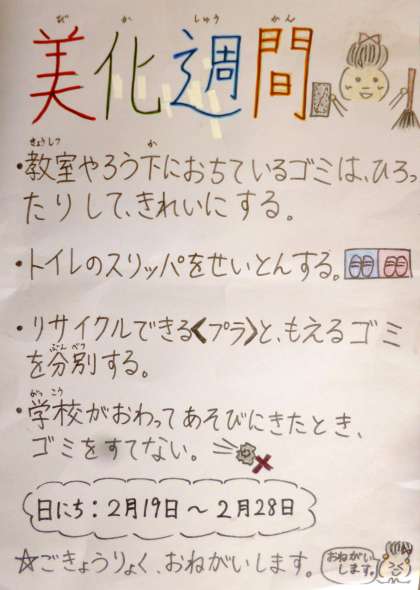 びかしゅうかん
美化週間
きょうしつ か
・教室やろう下におちているゴミは、ひろっ
たりして、きれいにする。
・トイレのスリッパをせいとんする。
・リサイクルできる<プラ>と、もえるゴミ
ぶんべつ
を分別する。
がっこう
・学校がおわってあそびにきたとき、
ゴミをすてない。
日にち:2月19日〜2月28日
☆ごきょうりょく、おねがいします。
おねがい
します。